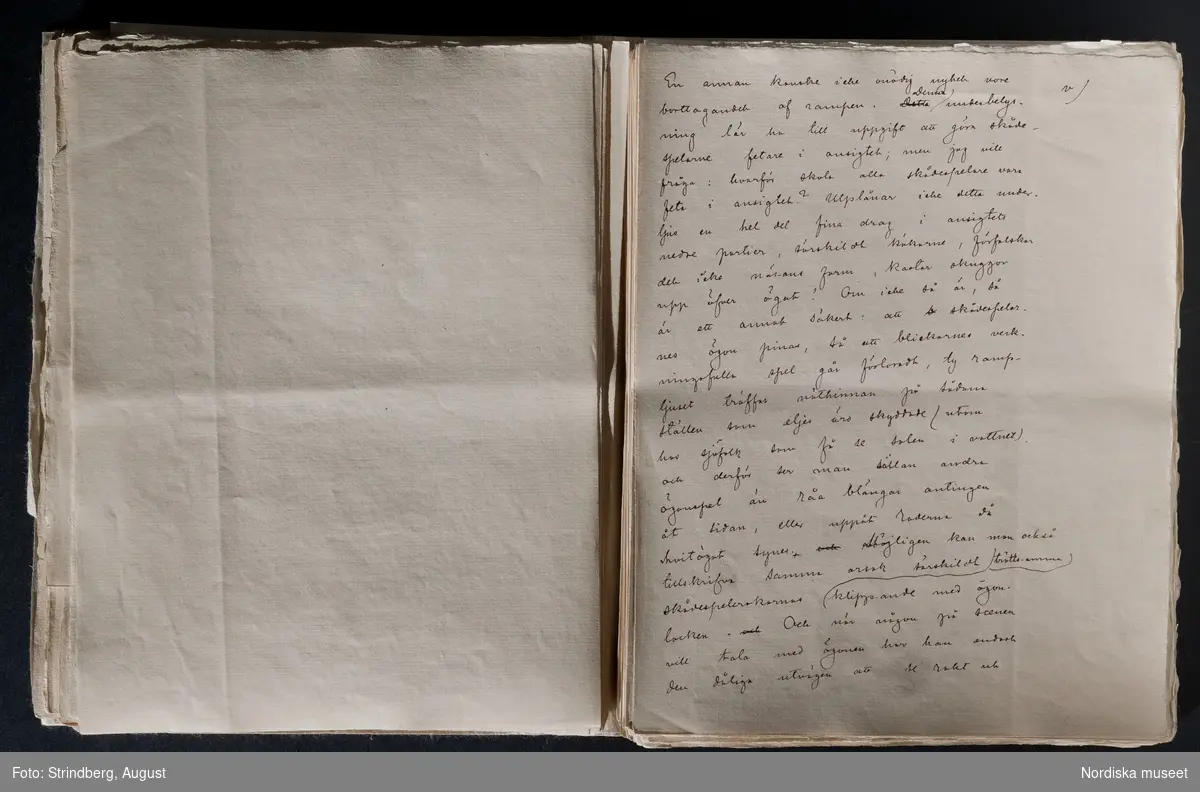 En annan kanske icke onödig nyhet vore
v)
borttagandet af rampen. Detta Denna underbelys-
ning lär ha till uppgift att göra skåde-
spelarne fetare i ansigtet; men jag vill
fråga: hvarför skola alla skådespelare vara
feta i ansigtet? Utplånar icke detta under-
ljus en hel del fina drag i ansigtets
nedre partier, särskildt käkarne, förfalskar
det icke näsans form, kastar skuggor
upp öfver ögat? Om icke så är, så
är ett annat säkert: att skådespelar-
nes ögon pinas, så att blickarnes verk-
ningsfulla spel går förloradt, ty ramp-
ljuset träffar näthinnan på sådana
ställen som eljes äro skyddade (utom
hos sjöfolk som få se solen i vattnet)
och derför ser man sällan andra
ögonspel än råa blängar antingen
åt sidan, eller uppåt raderna då
hvitögat synes. och Möjligen kan man också
tillskrifva samma orsak särskildt tröttsamma
skådespelerskornas klippande med ögon-
locken. och Och när någon på scenen
vill tala med ögonen har han endast
den dåliga utvägen att se rakt ut
Foto: Strindberg, August
Nordiska museet